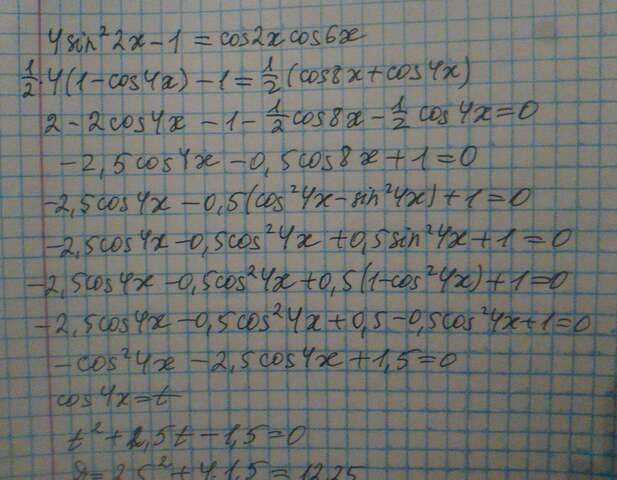 4sin²2x-1=cos2xcos6x
½·4(1-cos4x)-1=½(cos8x+cos4x)
2-2cos4x-1-½cos8x-½cos4x=0
-2,5cos4x-0,5cos8x+1=0
-2,5cos4x-0,5(cos²4x-sin²4x)+1=0
-2,5cos4x-0,5cos²4x+0,5sin²4x+1=0
-2,5cos4x-0,5cos²4x+0,5(1-cos²4x)+1=0
-2,5cos4x-0,5cos²4x+0,5-0,5cos²4x+1=0
-cos²4x-2,5cos4x+1,5=0
cos4x=t
t²+2,5t-1,5=0
=2,5²+4·1,5=12,25